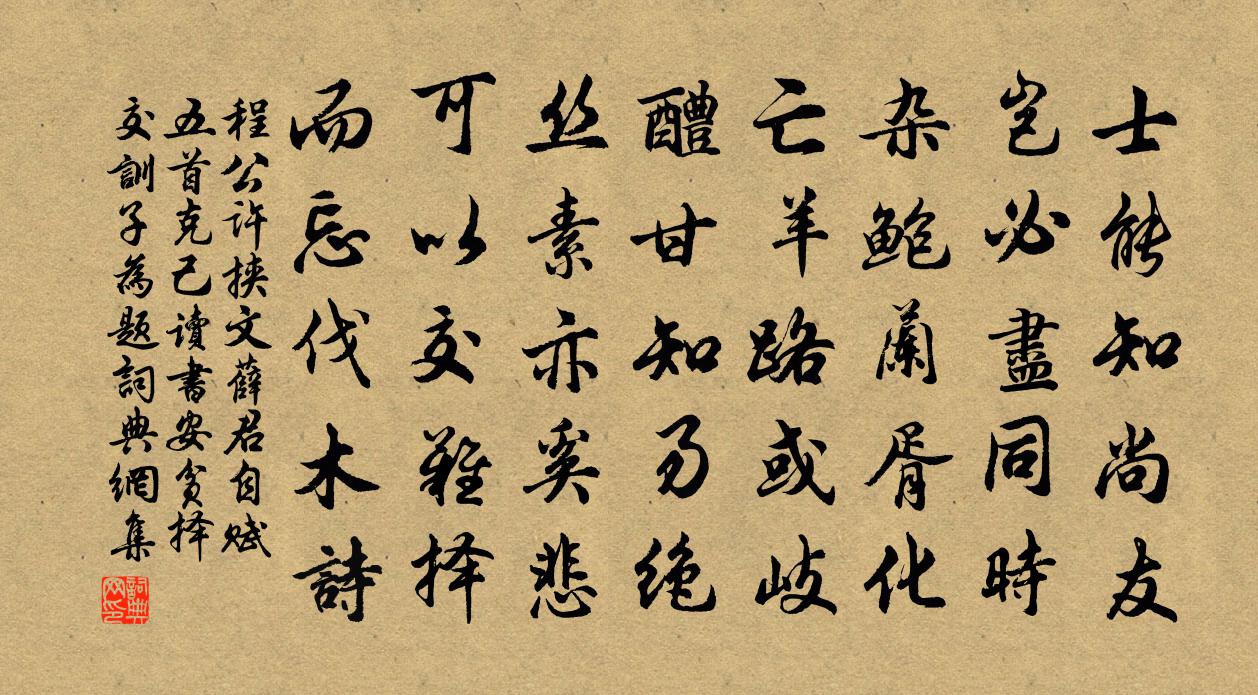 士能知尚友
岂必盡同時
杂鲍蘭胥化
亡羊路或岐
醴甘知易绝
丝素亦奚悲
可以交難择
而忘伐木詩
程公许挟文薛君自赋
五首克己讀書安贫择
交訓子為题詞典網集